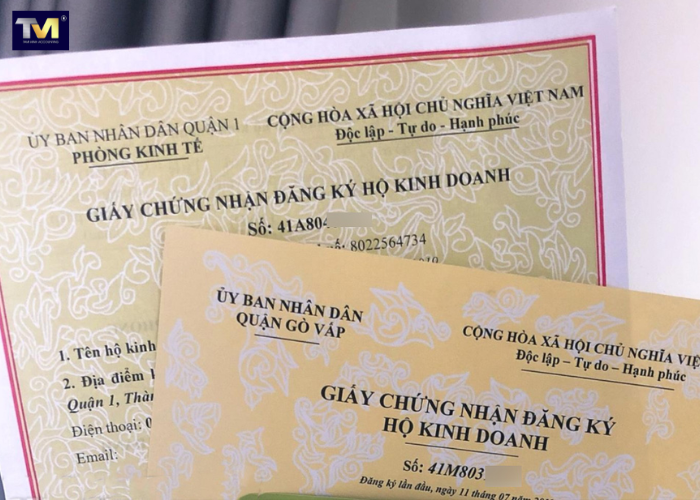 TM
ỦY BAN NHÂN DÂN QUẬN 1
PHÒNG KINH TẾ
CỘNG HÒA XÃ HỘI CHỦ NGHĨA VIỆT NAM
Độc lập - Tự do - Hạnh phúc
GIẤY CHỨNG NHẬN ĐĂNG KÝ HỘ KINH DOANH
Số: 41A804
số: 8022564734
1. Tên hộ kinh
2. Địa điểm
Quận 1, Thàn
Điện thoại: 0
Email:
ỦY BAN NHÂN DÂN
QUẬN GÒ VẤP
CỘNG HÒA XÃ HỘI CHỦ NGHĨA VIỆ
Độc lập – Tự do – Hạnh phúc
GIẤY CHỨNG NHẬN ĐĂNG KÝ
HỘ KINH DOANH
Số: 41M803
Đăng ký lần đầu, ngày 11 tháng 07 năm